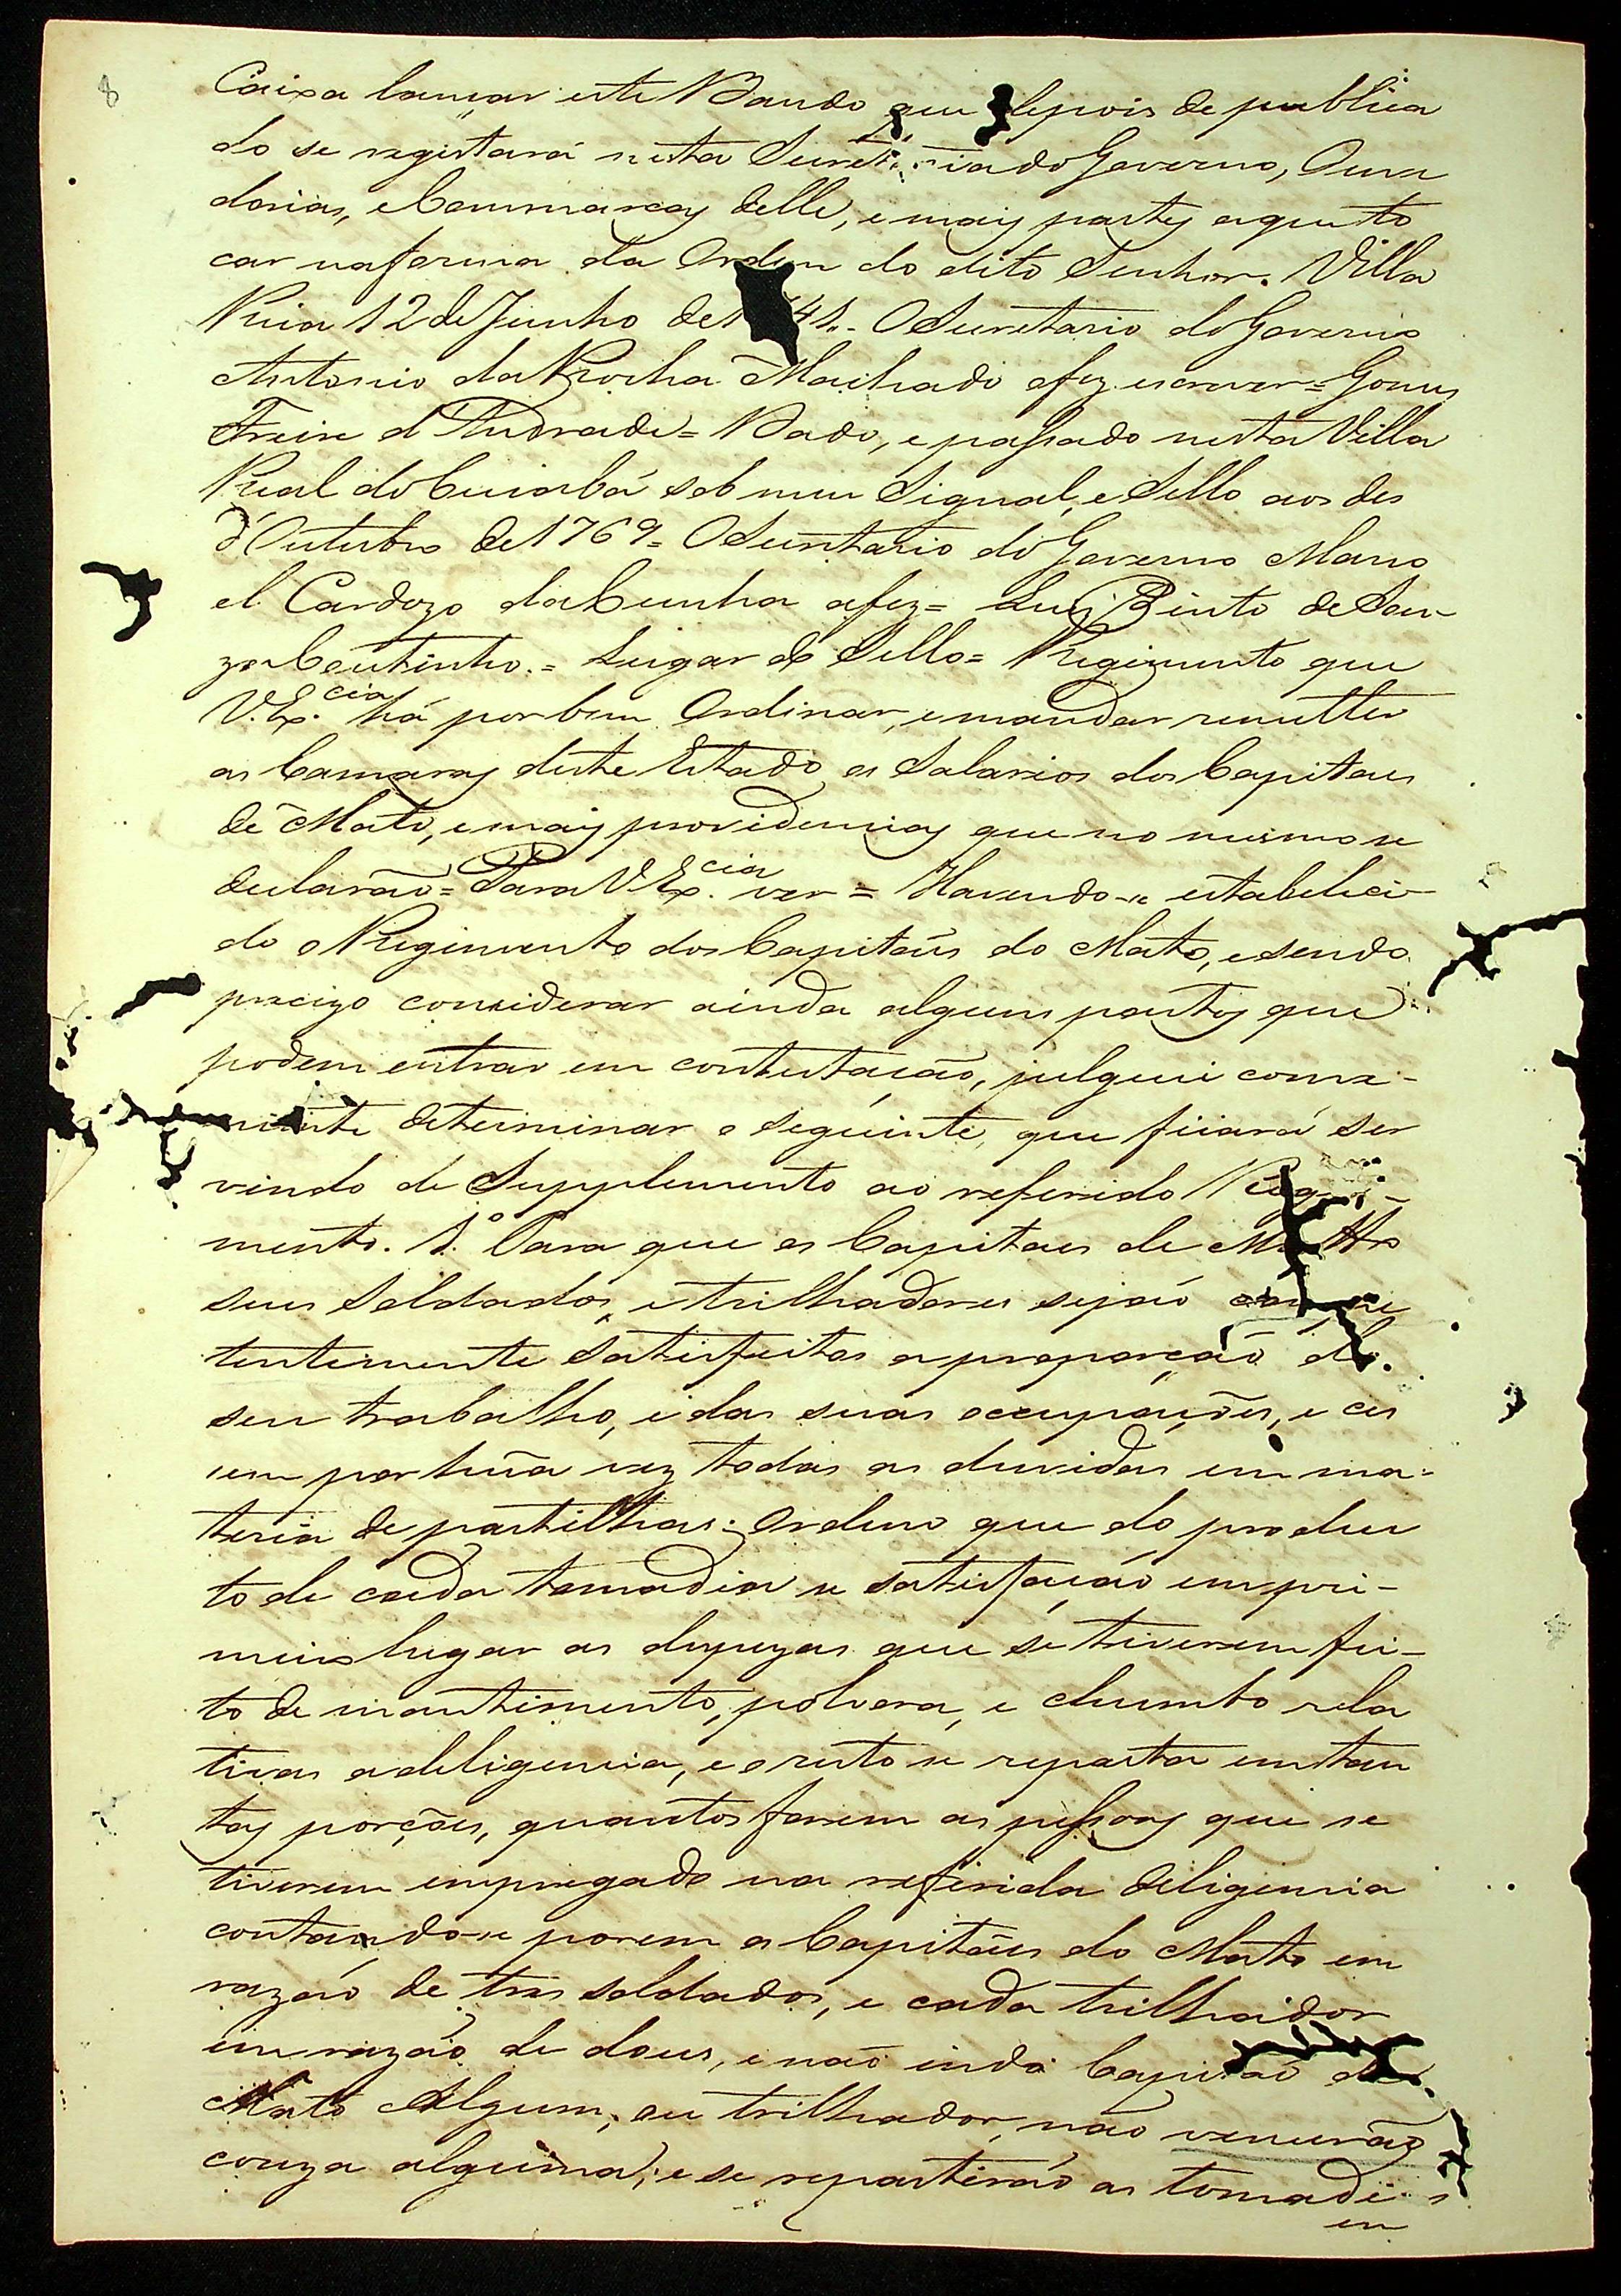 8
Caixa lançar este Bando que depois de publica
do se registará nesta Secretariado Governo, Ouve
dorias, eCommarcas delle, e mais partes aque to
car naforma da Ordem do dito Senhor. Villa
Rica 12 deJunho de1 41.- OSecretario doGoverno
Antonio daRocha Machado afez escrever= Gomes
Freire d'Andrade= Dado, e passado nesta Villa
Real doCuiabá sob meu Signal, e Sello aos des
d'Outubro de1769= OSecretario doGoverno Mano
el Cardozo daCunha afez= Luiz Pinto deSou-
zaCoutinho.= Lugar do Sello= Regimento que
V.Ex.cia há por bem Ordinar, e mandar remetter
as Camaras deste Estado, os Salarios dos Capitaes
de Mato, e mais providencias que no mesmo se
declarão= Para V.Ex.cia ver = Havendo-se estabeleci-
do o Regimento dos Capitães do Mato, e sendo
precizo considerar ainda alguns pontos que
podem entrar em contestação, julguei conve-
niente determinar o seguinte, que ficará ser
vindo de Supplemento ao referido Regi-
mento. 1.º Para que os Capitaes de Matto
seus Soldados, e trilhadores sejão compe
tentemente Satisfeitos a proporção do
seu trabalho, e das suas occupações, e ces
sem por huã vez todas as duvidas em ma-
teria de partilhas: Ordeno que do produc
to de cada tomadia se satisfação em pri-
meiro lugar as despezas que se tiverem fei-
to de mantimento, polvora, e chumbo rela
tivas a deligencia, e o resto se reparta em tan
tas porções, quantos forem as pessoas que se
tiverem empregado na referida deligencia
contando-se porem os Capitães do Mato em
razão de tres soldados, e cada trilhador
em razão de dous, e não indo Capitão do
Mato Algum, ou trilhador, não vencerão
couza alguma, e se repartirão as tomadias
em